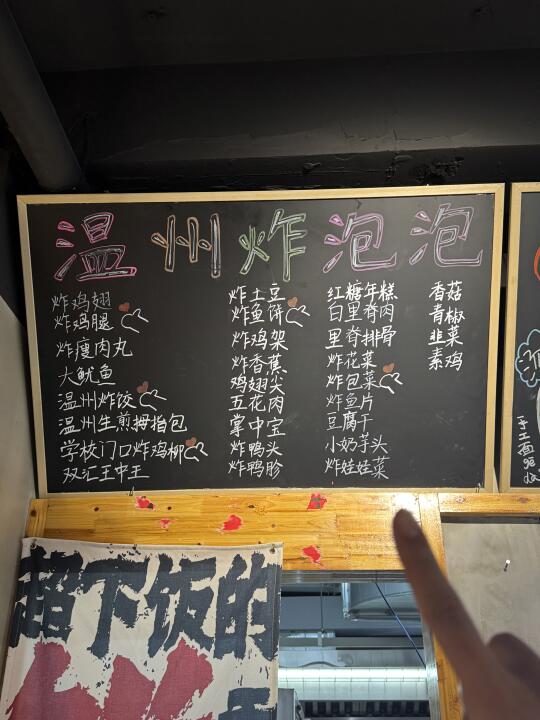 温州炸泡泡
炸鸡翅
炸鸡腿
炸瘦肉丸
大鱿鱼
温州炸饺
温州生煎拇指包
学校门口炸鸡柳
双汇王中王
炸土豆
炸鱼饼
炸鸡架
炸香蕉
鸡翅尖
五花肉
掌中宝
炸鸭头
炸鸭胗
红糖年糕
白里脊肉
里脊排骨
炸花菜
炸包菜
炸鱼片
豆腐干
小奶芋头
炸娃娃菜
香菇
青椒
韭菜
素鸡
超下饭的